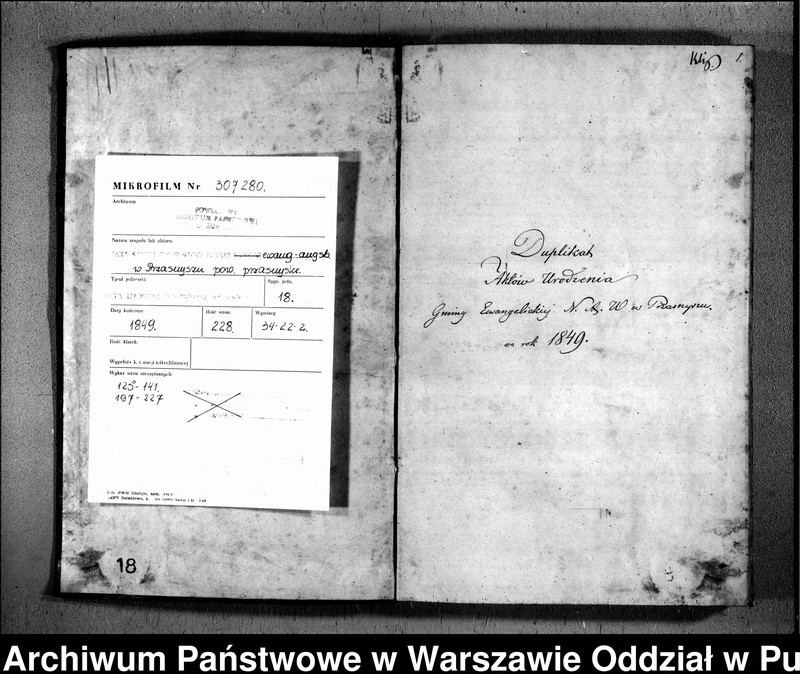 MIKROFILM Nr 307280.
Archiwum
Nazwa zespołu lub zbioru:
ewang.-augsb.
w Przasnyszu pow. przasnyski.
Tytuł jednostki
Sygn. jedn.
18.
Daty końcowe:
1849.
Ilość stron:
228.
Wymiary
34-22-2.
Ilość klatek:
Wypełnia
Wykaz stron niezapisanych:
125-141.
197-227
18
1.
Duplikat
Aktów Urodzenia
Gminy Ewangelickiej N. A. W w Przasnyszu.
na rok 1849.
Archiwum Państwowe w Warszawie Oddział w Pu